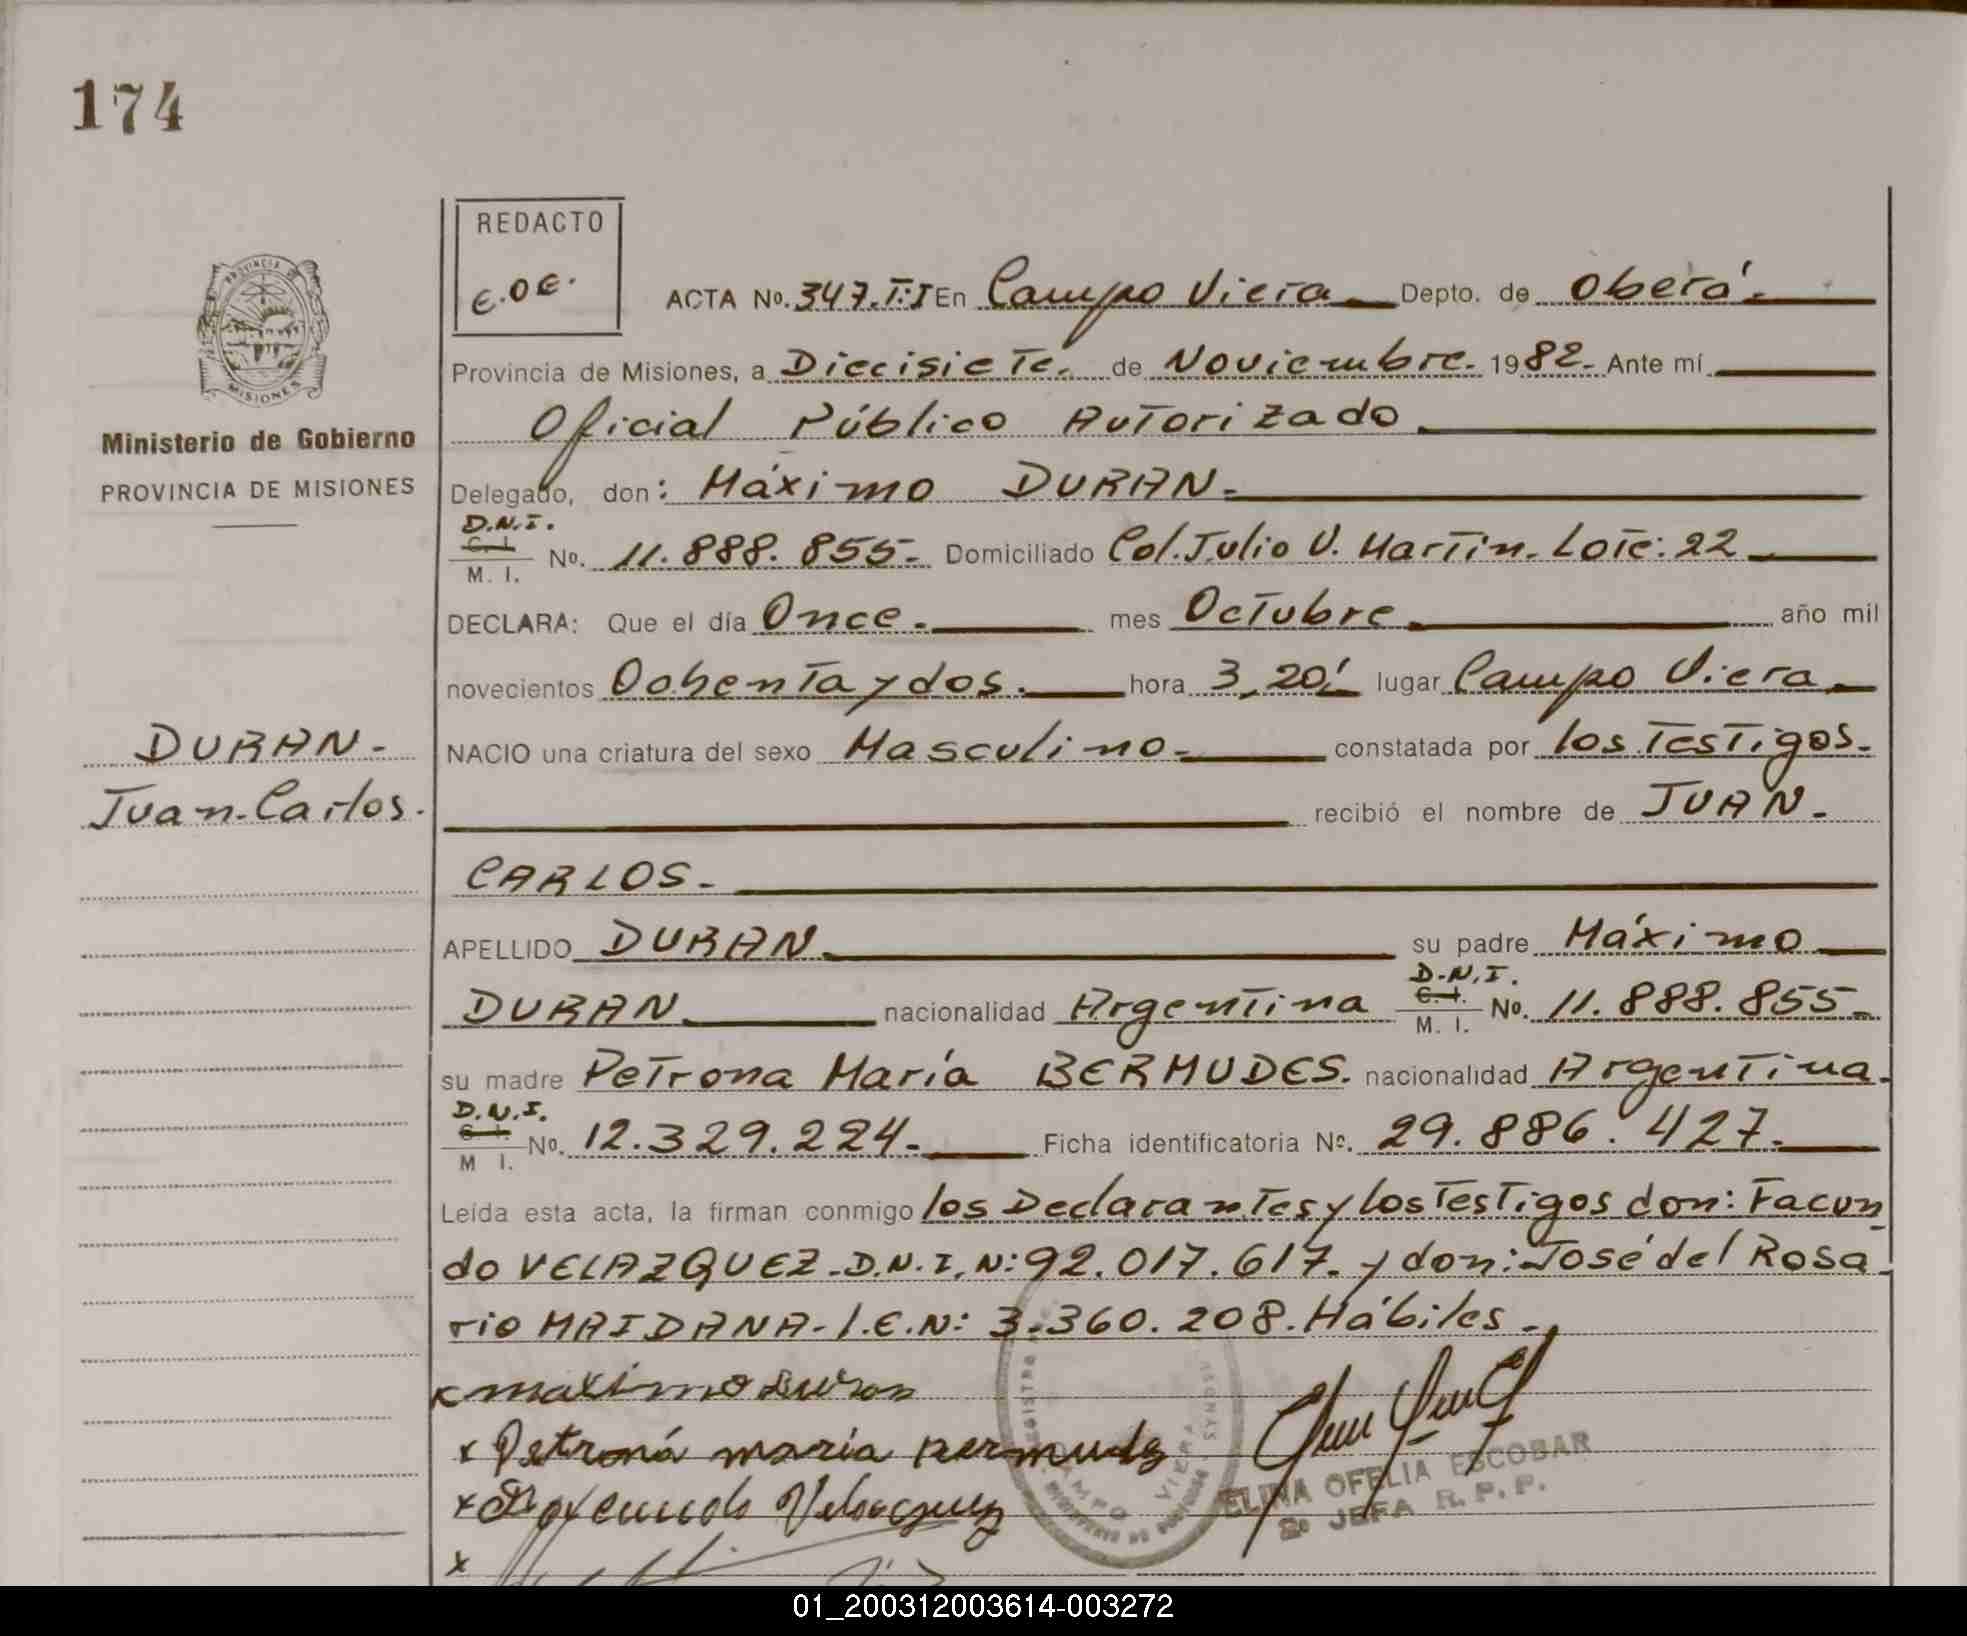 174
REDACTO
E.O.E.
ACTA No. 347.T:I En Campo Viera Depto. de Oberá.
Provincia de Misiones, a Diecisiete. de Noviembre. 1982. Ante mí
Oficial Público Autorizado
Delegado, don: Máximo DURAN.
D.N.I.
C. I.
M. I.
No. 11.888.855. Domiciliado Col. Julio U. Martin. Lote: 22
DECLARA: Que el día Once. mes Octubre. año mil
novecientos Oohenta y dos. hora 3,20' lugar Campo Viera
NACIO una criatura del sexo Masculino. constatada por los Testigos.
recibió el nombre de JUAN.
CARLOS.
APELLIDO DURAN su padre Máximo
D.N.I.
C. I.
M. I.
DURAN nacionalidad Argentina No. 11.888.855.
su madre Petrona María BERMUDES. nacionalidad Argentina.
D.N.I.
C. I.
M I.
No. 12.329.224. Ficha identificatoria No. 29.886.427.
Leída esta acta, la firman conmigo los Declarantes y los Testigos don: Facun
do VELAZQUEZ. D.N.I. N: 92.017.617. y don: José del Rosa
rio MAIDANA - L.E.N: 3.360.208. Hábiles.
x maximo Duran
x Petrona maria Bermudez
x Facundo Velazquez
x
ELINA OFELIA ESCOBAR
2o JEFA R. P. P.
CAMPO VIERA
PROVINCIA DE
MISIONES
Ministerio de Gobierno
PROVINCIA DE MISIONES
DURAN.
Juan Carlos.
01_200312003614-003272